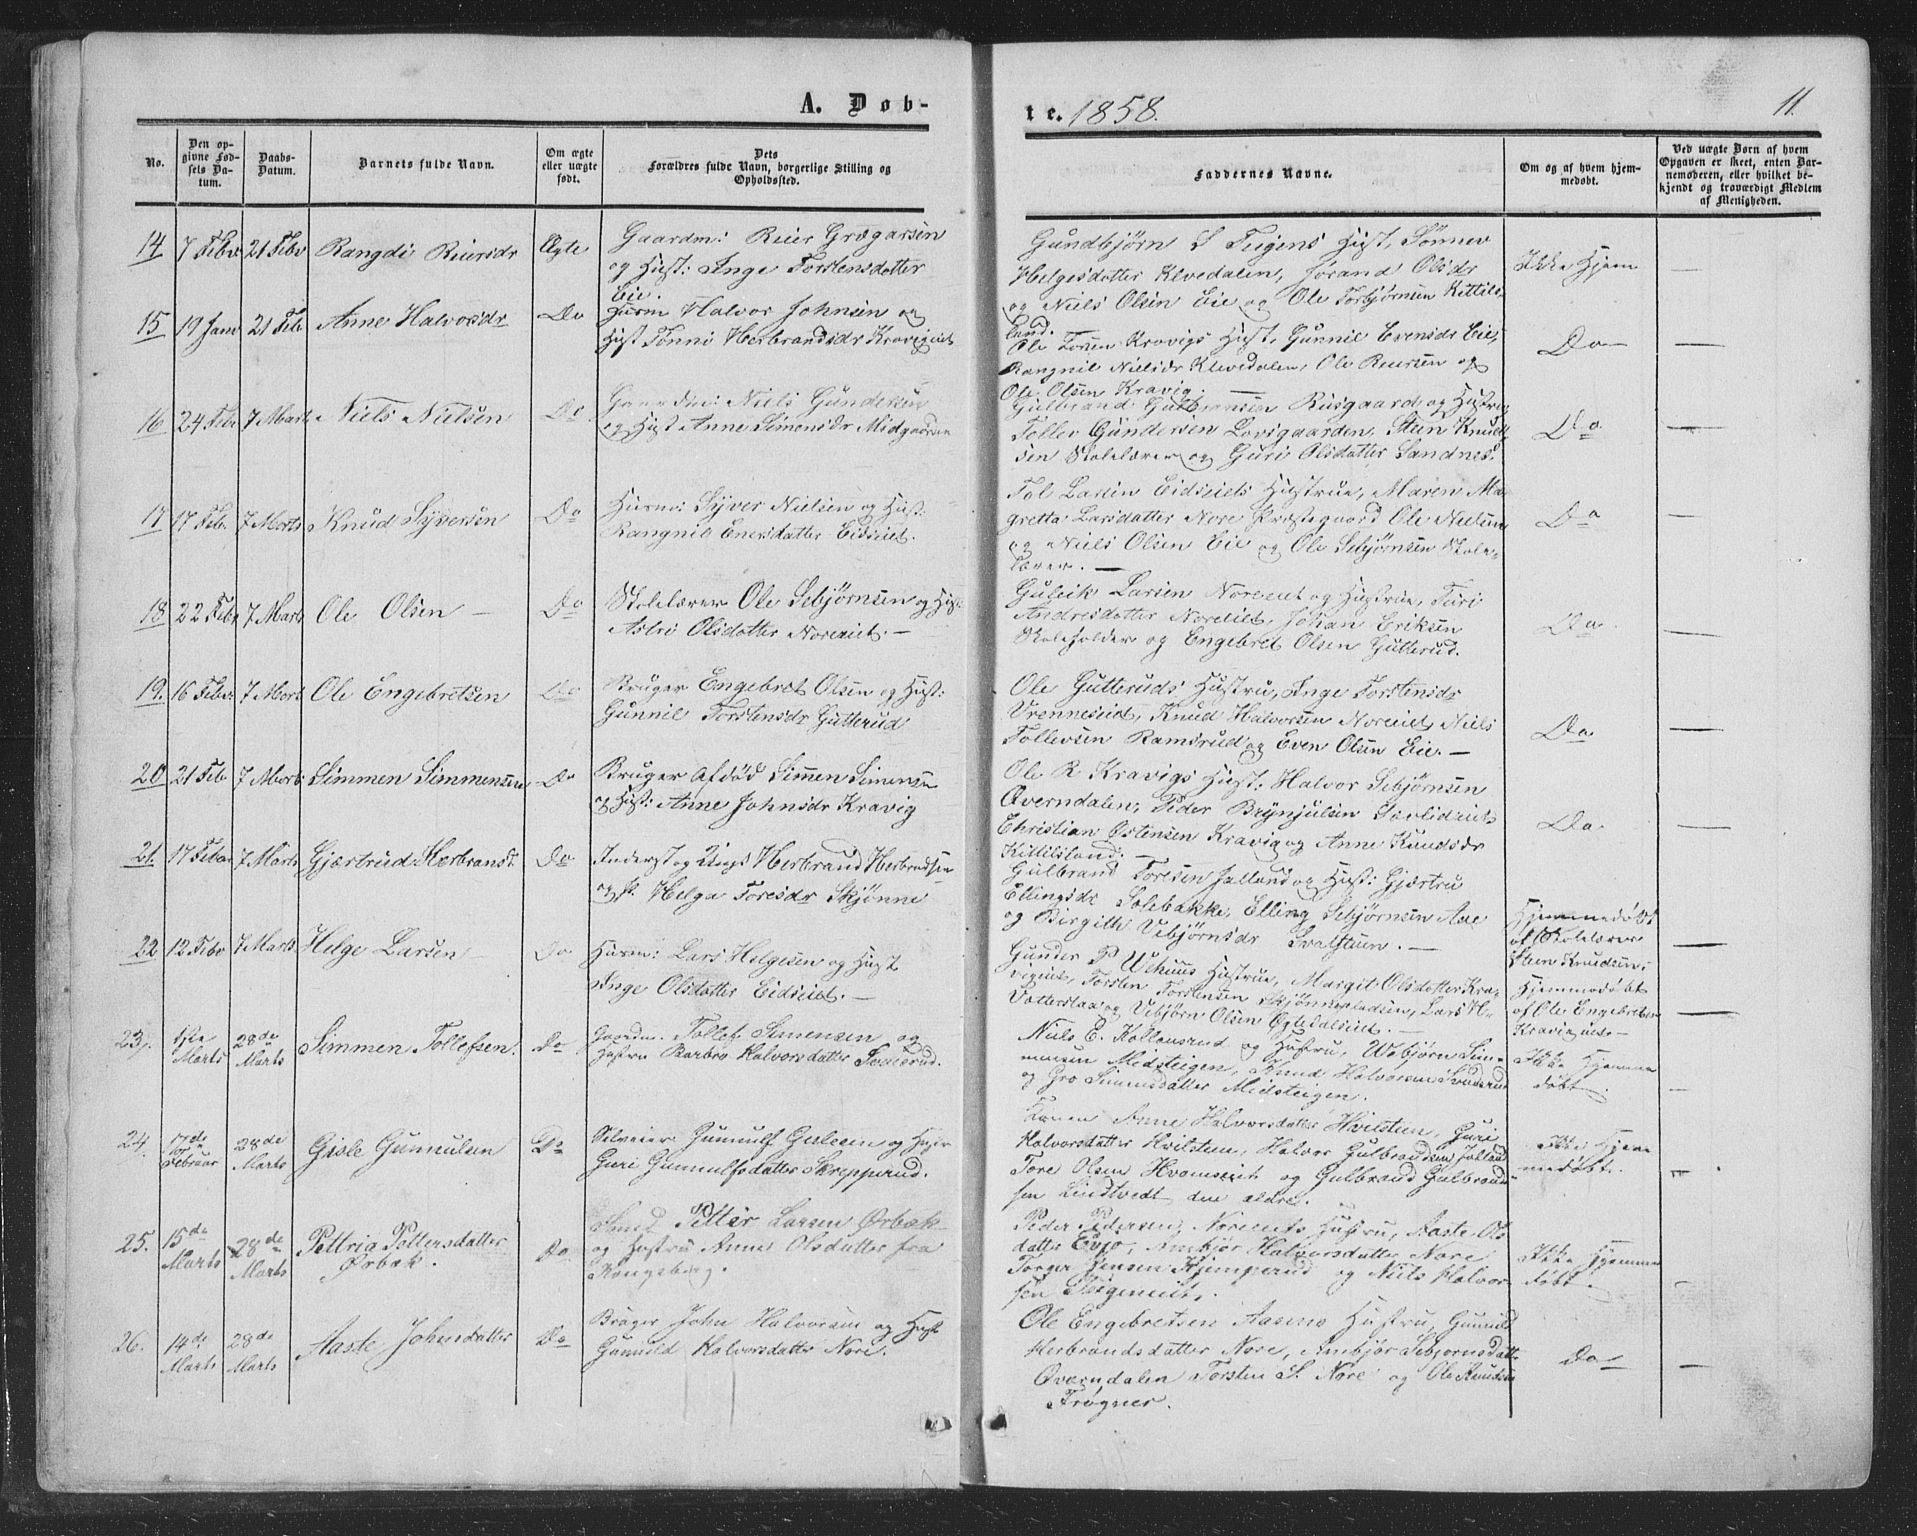 A. Døb-
te. 1858.
11.
No.
Den opgivne Fødsels Datum.
Daabs-Datum.
Barnets fulde Navn.
Om ægte eller uægte født.
Dets Forældres fulde Navn, borgerlige Stilling og Opholdssted.
Faddernes Navne.
Om og af hvem hjemmedøbt.
Ved uægte Børn af hvem Opgaven er skeet, enten Barnemoderen, eller hvilket bekjendt og troværdigt Medlem af Menigheden.
14 7 Febr 21 Febr Rangdi Reiersdr Ægte
Gaardm: Reier Grægarsen
og Hust: Inge Torstensdatter
Eie.
Gundbjørn S Teigens Hust, Sønnev
Helgesdatter Klevedalen, Jørand Olsdr
og Niels Olsen Eie og Ole Torbjørnsen Kittils-
land.
Ikke Hjem —
15 19 Janr 21 Feb Anne Halvorsdr Do
Husm Halvor Johnsen og
Hust Tønne Herbrandsdr Kravigeiet
Ole Toresen Kravigs Hust, Gunnil Evensdr Eie,
Rangnil Nielsdr Klevedalen, Ole Reiersen og
Ole Olsen Kravig. —
Do —
16 24 Febr 7 Marts Niels Nielsen Do
Gaardm: Niels Gundersen
og Hust Anne Simensdr Midgaarden
Gulbrand Gulbransen Risgaard og Hustru
Tollev Gundersen Lovisgaarden, Steen Knud-
sen Skolelærer og Guri Olsdatter Sandnes.
Do —
17 17 Feb. 7 Marts Knud Syversen Do
Husm: Syver Nielsen og Hust:
Rangnil Enersdatter Eidseiet.
Tol Larsen Eidseiets Hustrue, Maren Ma-
gretta Larsdatter Nore Præstegaard Ole Nielsen
og Niels Olsen Eie og Ole Sebjørnsen Skole-
lærer. —
Do —
18 22 Febr 7 Marts Ole Olsen — Do
Skolelærer Ole Sebjørnsen og Hust:
Astri Olsdatter Noreeiet. —
Guleik Larsen Noreeiet og Hustrue, Turi
Andresdatter Noreeiet, Johan Eriksen
Skoleholder og Engebret Olsen Gutterud.
Do —
19. 16 Febr 7 Marts Ole Engebretsen Do
Bruger Engebret Olsen og Hust:
Gunnil Torstensdr Gutterud
Ole Gutteruds Hustru, Inge Torstensdr
Vrenneseid, Knud Halvorsen Noreeiet, Niels
Tollevsen Ramsrud og Even Olsen Eie. —
Do —
20 21 Feb 7 Marts Simmen Simmensen Do
Bruger Afdød Simen Simensen
og Hust: Anne Johnsdr Kravig
Ole R Kravigs Hust: Halvor Sebjørnsen
Øverndalen, Peder Brynjulsen
Christian Østensen Kravig og Anne Knudsdr
Kittilsland. —
Do —
21. 17 Febr 7 Marts Gjærtrud Herbransd. Do
Herbrand Herbrandsen
og H. Helga Toresdr Skjønne
Gulbrand Toresen Jalland og Hust: Gjærtru
Ellingsdr Solebakke, Elling Sebjørnsen Aae
og Birgith Vebjørnsdr Svalstuen. —
Hjemmedøbt
af Skolelærer
Steen Knudsen. —
22 12 Febr 7 Marts Helge Larsen — Do
Husm: Lars Helgesen og Hust
Inge Olsdatter Eidseiet. —
Gunder P Uehuus Hustrue, Margit Olsdatter Kra-
vigeiet, Torsten Torstensen Lars H-
Vatterslaa og Vebjørn Olsen —
Hjemmedøbt
af Ole Engebretsen
Kravigeiet —
23. 1ste Marts 28de Marts Simmen Tollefsen. Do
Gaardm. Tollef Simensen og
Hustru Barbro Halvorsdatter
Niels E. Kollansrud og Hustru, Webjørn Sim-
mensen Medsteigen, Knud Halvorsen
og Gro Simensdatter Midsteigen.
Ikke Hjemme
døbt. —
24. 17de Februar 28de Marts Gisle Gunnulsen Do
Selveier Gunnulf Gulesen og Hust
Guri Gunnulfsdatter Skrepperud.
Konen Anne Halvorsdatter Hvilsteen, Guri
Halvorsdatter Hvilsteen, Halvor Gulbrandsen Jalland
Tore Olsen og Gulbrand Gulbrand-
sen Lindtvedt den ældre.
Ikke Hjem
medøbt. —
25. 15de Marts 28de Marts Pettria Pettersdatter
Ørbæk. Do
Smed Petter Larsen Ørbæk
og Hustru Anne Olsdatter fra
Kongsberg.
Peder Pedersen Noreeiets Hustru, Aaste Ols-
datter Evjo, Ambjør Halvorsdatter Nore
Torger Jensen Kjemperud og Niels Halvor-
sen
Ikke Hjemme
døbt. —
26. 14de Marts 28de Marts Aaste Johnsdatter Do
Bruger John Halvorsen og Hust
Gunild Halvorsdatter Nore.
Ole Engebretsen Aasens Hustru, Gunild
Herbrandsdatter Nore, Ambjør Sebjørnsdatter
Øverndalen Torsten S. Nore og Ole Knudsen
Frøgner.
Do —